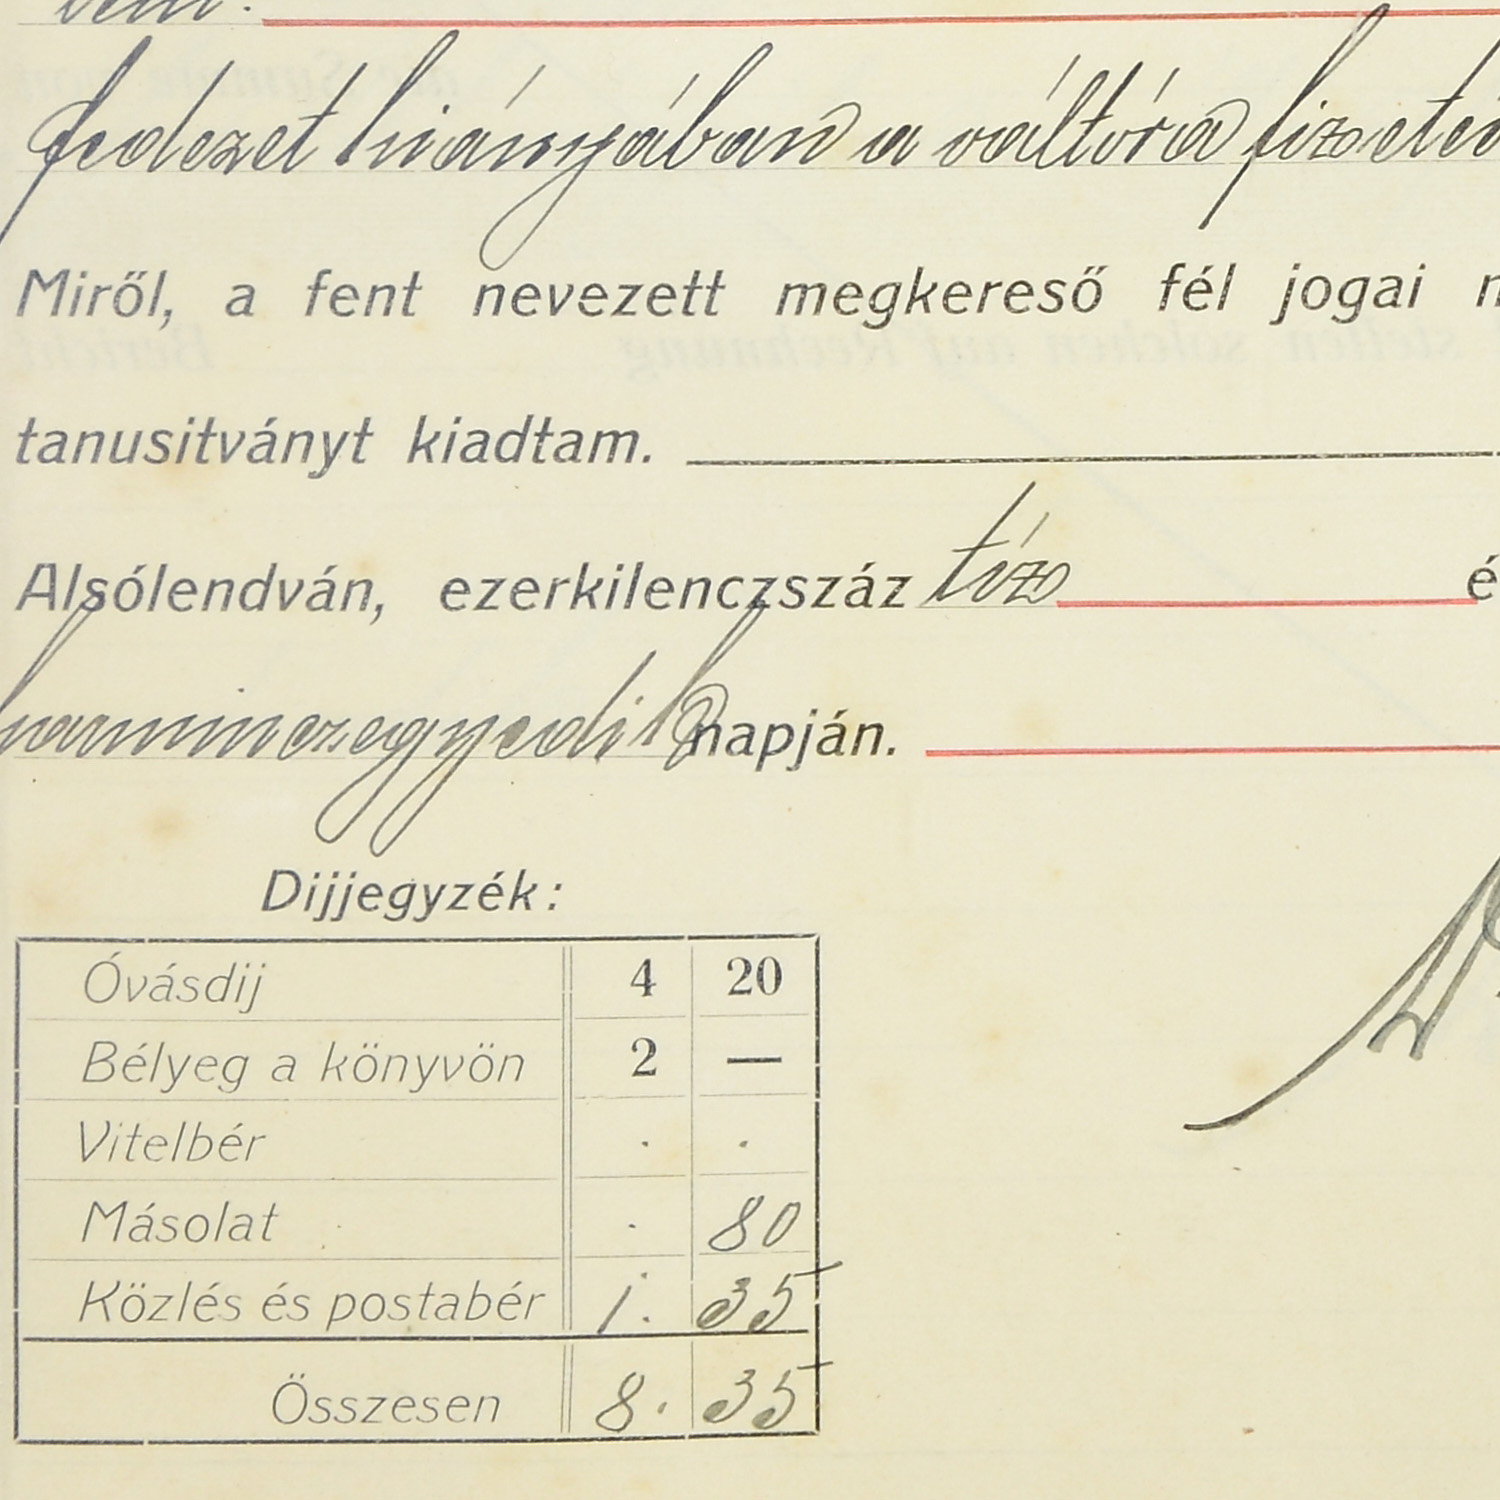 fedezet hiányában a váltóra fizetés
Miről, a fent nevezett megkereső fél jogai
tanusitványt kiadtam.
Alsólendván, ezerkilenczszáz tíz é
harminczegyedik napján.
Dijjegyzék:
Óvásdij 4 20
Bélyeg a könyvön 2 —
Vitelbér . .
Másolat . 80
Közlés és postabér 1. 35
Összesen 8. 35